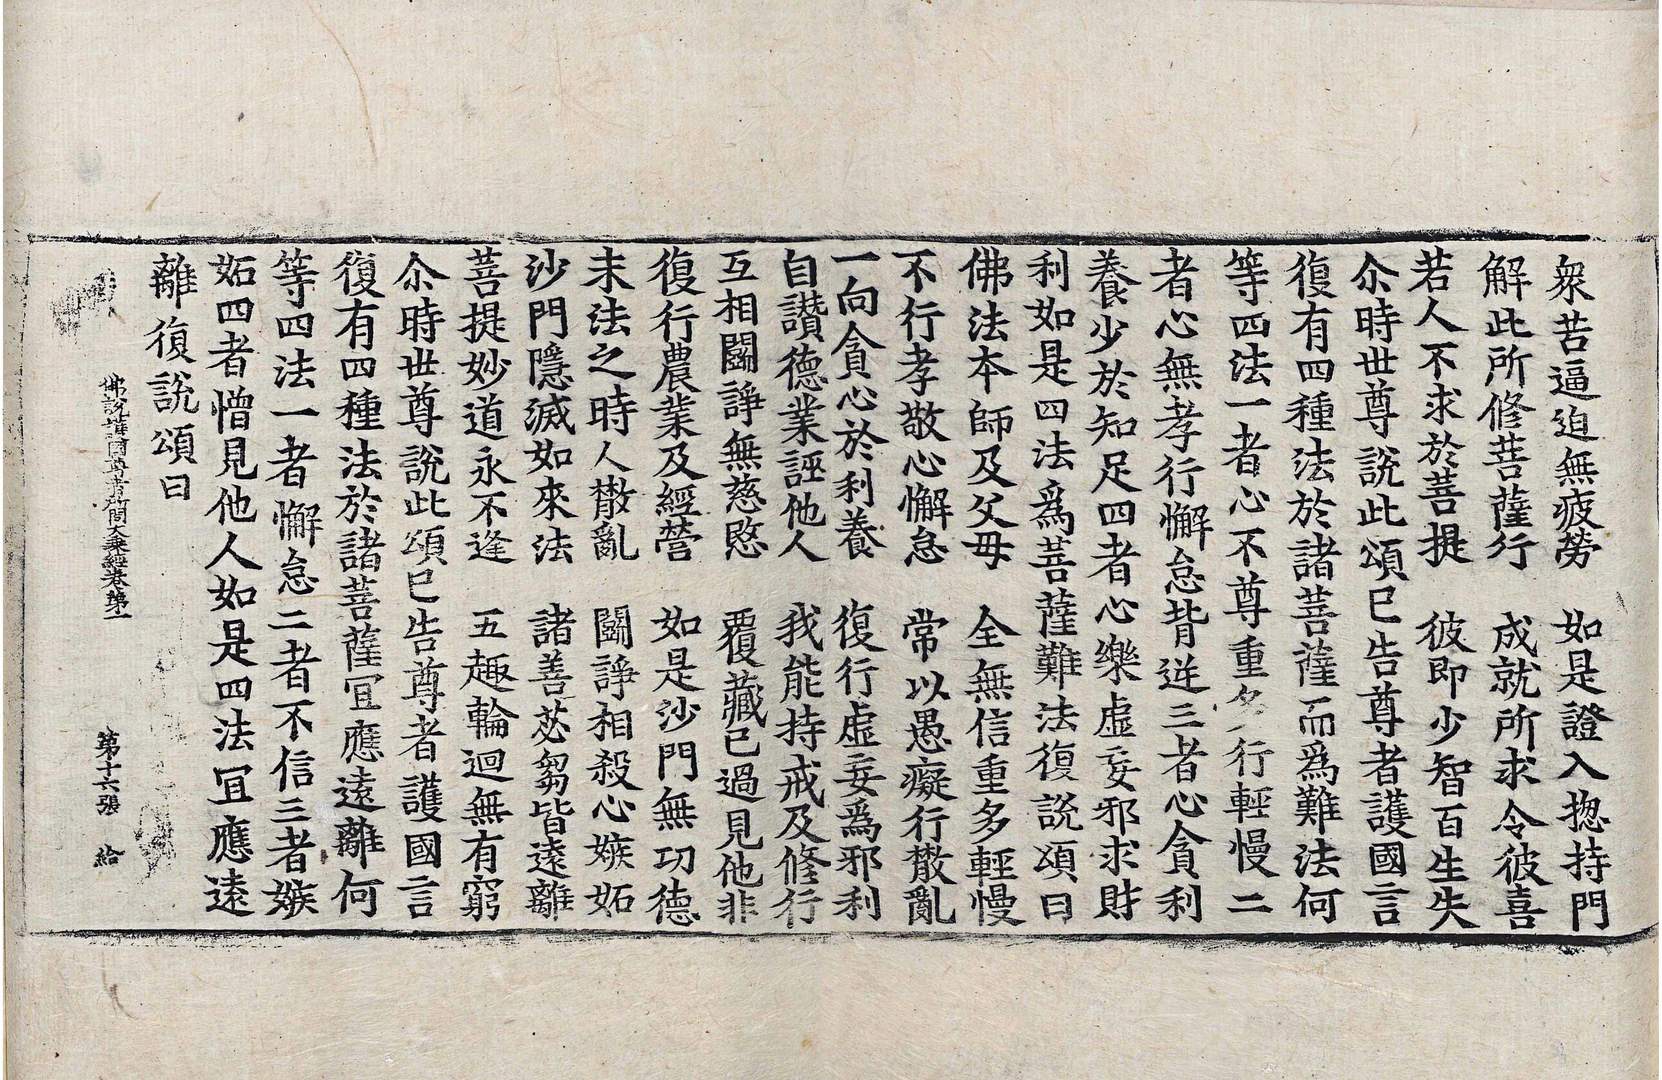 衆苦逼迫無疲勞　如是證入揔持門
解此所修菩薩行　成就所求令彼喜
若人不求於菩提　彼即少智百生失
尒時世尊說此頌已告尊者護國言
復有四種法於諸菩薩而爲難法何
等四法一者心不尊重多行輕慢二
者心無孝行懈怠背逆三者心貪利
養少於知足四者心樂虛妄邪求財
利如是四法爲菩薩難法復說頌曰
佛法本師及父母　全無信重多輕慢
不行孝敬心懈怠　常以愚癡行散亂
一向貪心於利養　復行虛妄爲邪利
自讃德業誣他人　我能持戒及修行
互相鬪諍無慈愍　覆藏已過見他非
復行農業及經營　如是沙門無功德
末法之時人散亂　鬪諍相殺心嫉妬
沙門隱滅如來法　諸善苾芻皆遠離
菩提妙道永不逢　五趣輪迴無有窮
尒時世尊說此頌已告尊者護國言
復有四種法於諸菩薩冝應遠離何
等四法一者懈怠二者不信三者嫉
妬四者憎見他人如是四法冝應遠
離復說頌曰
佛說護國尊者所問大乘經卷第一　第十六張　給